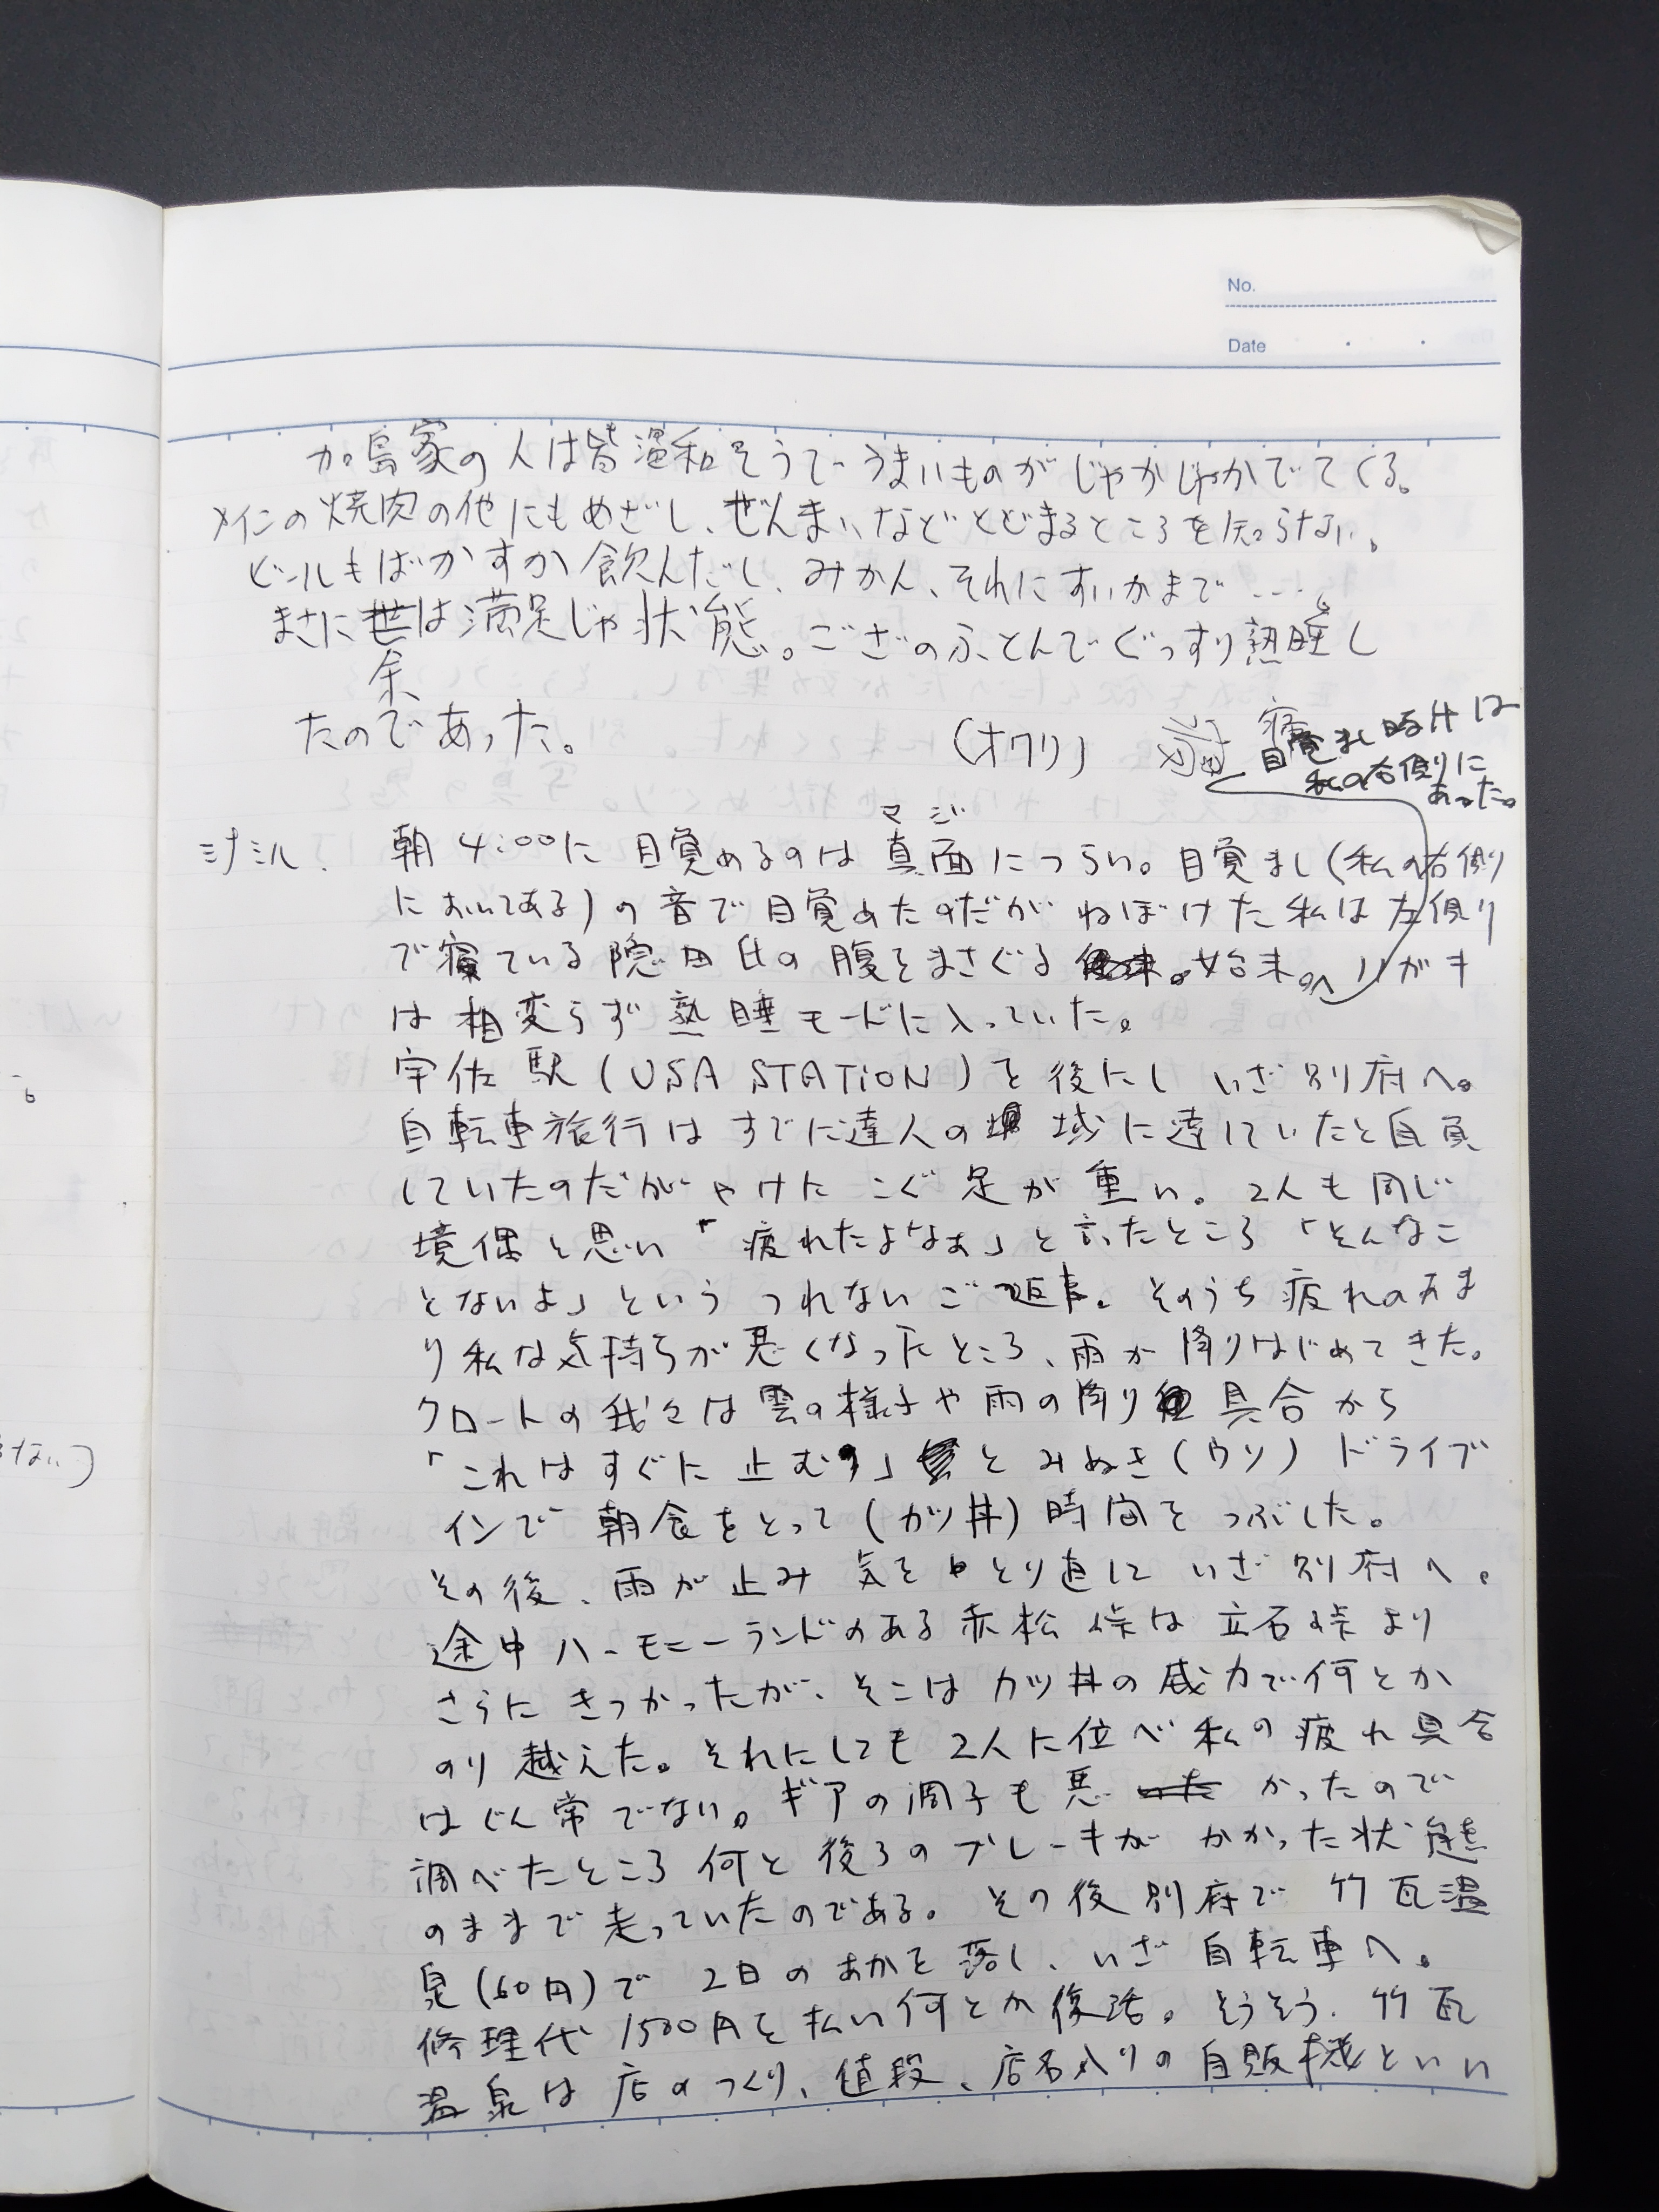 No.
Date
加島家の人は皆温和そうで うまいものがじゃかじゃかでてくる。
メインの焼肉の他にもめざし、ぜんまいなどとどまるところを知らない。
ビールもばかすか飲んだし、みかん、それにすいかまで……。
まさに世は満足じゃ状態。ござのふとんでぐっすり熟睡し
余
たのであった。 (オワリ)
目覚まし時計は
私の右側に
あった。
マジ
ミナミル. 朝4:00に目覚めるのは真面につらい。目覚まし(私の右側
においてある)の音で目覚めたのだがねぼけた私は左側
で寝ている隠田氏の腹をまさぐる 始末。ハガキ
は相変らず熟睡モードに入っていた。
宇佐駅(USA STATION)を後にし いざ別府へ。
自転車旅行はすでに達人の域に達していたと自負
していたのだがやけにこぐ足が重い。2人も同じ
境偶と思い「疲れたよなぁ」と言ったところ「そんなこ
とないよ」という つれないご返事。そのうち疲れのあま
り私な気持ちが悪くなったところ、雨が降りはじめてきた。
クロートの我々は雲の様子や雨の降り具合から
「これはすぐに止む」とみぬき(ウソ) ドライブ
インで朝食をとって(カツ丼)時間をつぶした。
その後、雨が止み 気をとり直して いざ別府へ。
途中ハーモニーランドのある赤松峠は立石峠より
さらにきつかったが、そこはカツ丼の威力で何とか
のり越えた。それにしても2人に位べ私の疲れ具合
はじん常でない。ギアの調子も悪かったので
調べたところ何と後ろのブレーキがかかった状態
のままで走っていたのである。その後別府で竹瓦温
泉(60円)で2日のあかを落し、いざ自転車へ。
修理代1500円を払い何とか復活。そうそう. 竹瓦
温泉は店のつくり、値段、店名入りの自販機といい